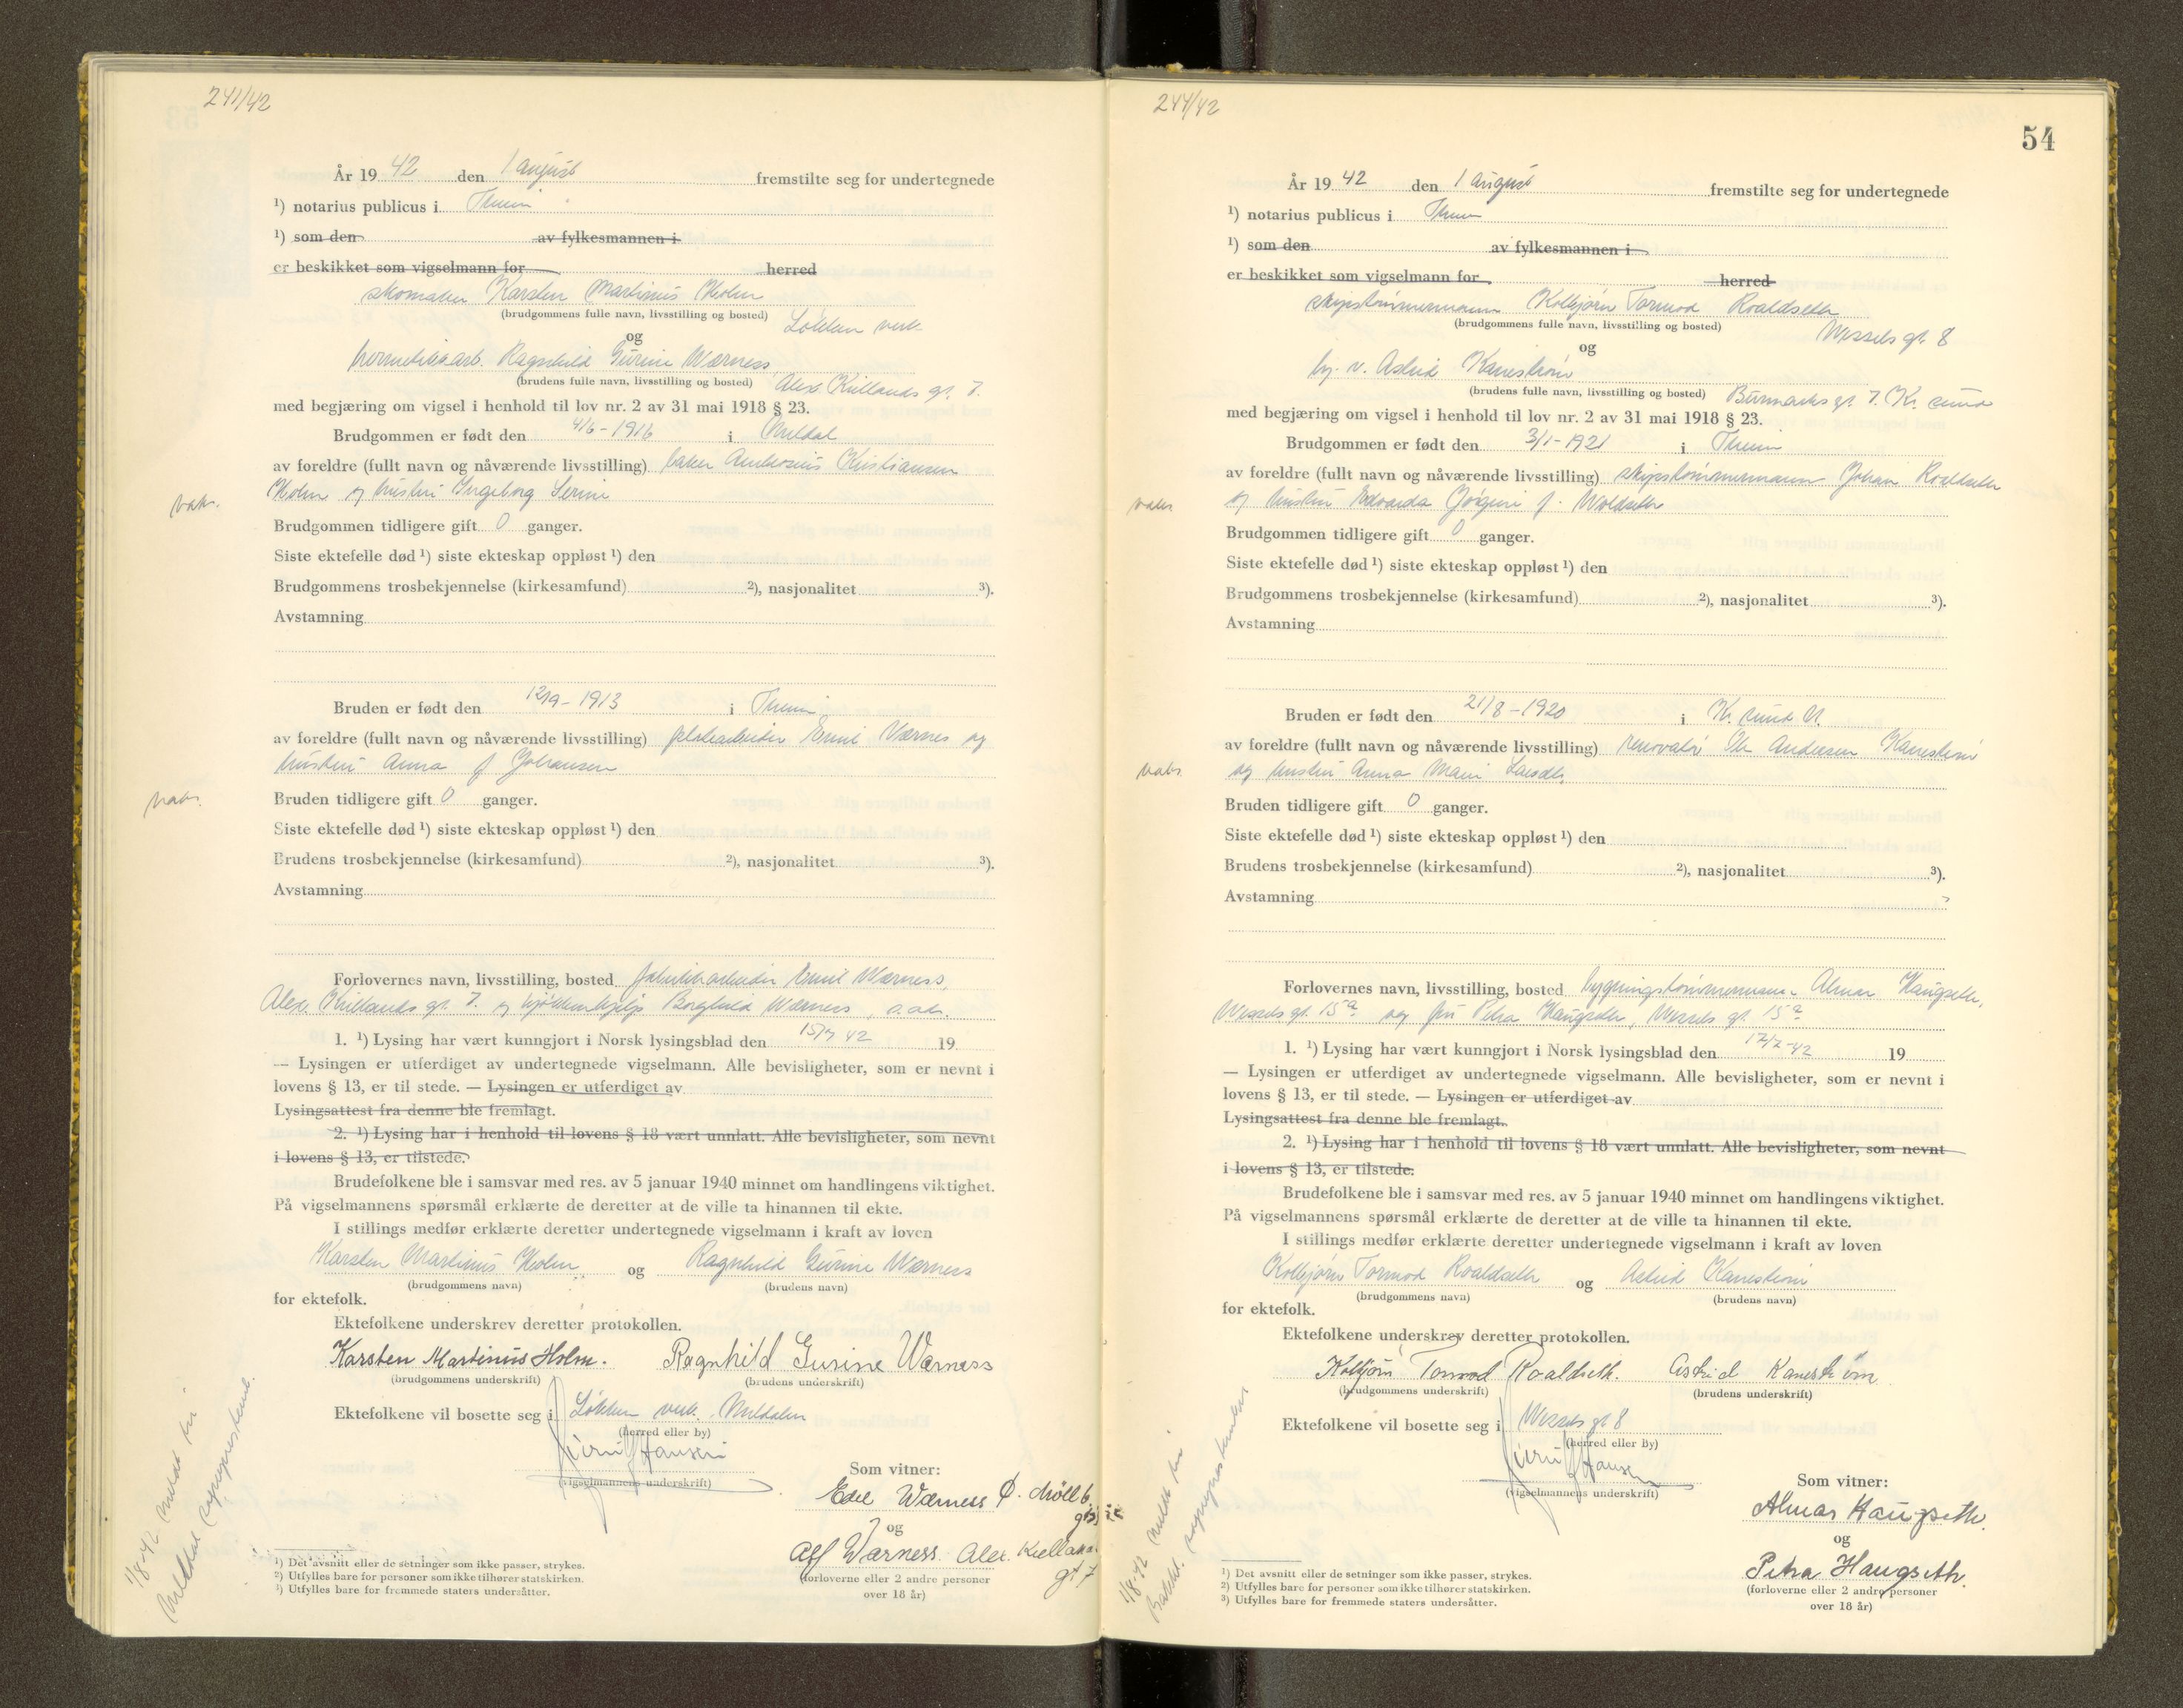 241/42
År 19 42 den 1 august fremstilte seg for undertegnede
¹) notarius publicus i Theim
¹) som den av fylkesmannen i
er beskikket som vigselmann for herred
skomaker Karsten Martinus Holm
(brudgommens fulle navn, livsstilling og bosted) Løkken verk
og
hermetikkarb. Ragnhild Gurine Wærness
(brudens fulle navn, livsstilling og bosted) Alex. Kiellands gt. 7.
med begjæring om vigsel i henhold til lov nr. 2 av 31 mai 1918 § 23.
Brudgommen er født den 4/6-1916 i Meldal
av foreldre (fullt navn og nåværende livsstilling) baker Ambrosius Kristiansen
Holm og hustru Ingeborg Serine
vaks.
Brudgommen tidligere gift 0 ganger.
Siste ektefelle død ¹) siste ekteskap oppløst ¹) den
Brudgommens trosbekjennelse (kirkesamfund) ²), nasjonalitet ³).
Avstamning
Bruden er født den 12/9-1913 i Theim
av foreldre (fullt navn og nåværende livsstilling) platearbeider Emil Værnes og
hustru Anna f Johansen
vaks.
Bruden tidligere gift 0 ganger.
Siste ektefelle død ¹) siste ekteskap oppløst ¹) den
Brudens trosbekjennelse (kirkesamfund) ²), nasjonalitet ³).
Avstamning
Forlovernes navn, livsstilling, bosted fabrikkarbeider Emil Wærness,
Alex. Kiellands gt. 7. og kjøkkenhjelp Borghild Wærness, s. ads.
1. ¹) Lysing har vært kunngjort i Norsk lysingsblad den 15/7 42 19
— Lysingen er utferdiget av undertegnede vigselmann. Alle bevisligheter, som er nevnt i
lovens § 13, er til stede. — Lysingen er utferdiget av
Lysingsattest fra denne ble fremlagt.
2. ¹) Lysing har i henhold til lovens § 18 vært unnlatt. Alle bevisligheter, som nevnt
i lovens § 13, er tilstede.
Brudefolkene ble i samsvar med res. av 5 januar 1940 minnet om handlingens viktighet.
På vigselmannens spørsmål erklærte de deretter at de ville ta hinannen til ekte.
I stillings medfør erklærte deretter undertegnede vigselmann i kraft av loven
Karsten Martinus Holm og Ragnhild Gurine Wærness
(brudgommens navn) (brudens navn)
for ektefolk.
Ektefolkene underskrev deretter protokollen.
Karsten Martinus Holm. Ragnhild Gurine Wærness
(brudgommens underskrift) (brudens underskrift)
Ektefolkene vil bosette seg i Løkken verk. Meldalen
(herred eller by)
Hansen
(vigselmannens underskrift)
Som vitner:
Edel Wærness Ø. Møllb.
og
Alf Wærness. Alex. Kielland
gt 7
(forloverne eller 2 andre personer
over 18 år)
¹) Det avsnitt eller de setninger som ikke passer, strykes.
²) Utfylles bare for personer som ikke tilhører statskirken.
³) Utfylles bare for fremmede staters undersåtter.
1/8-42 meldt til
Meldal sogneprestemb.
244/42
54
År 19 42 den 1 august fremstilte seg for undertegnede
¹) notarius publicus i Theim
¹) som den av fylkesmannen i
er beskikket som vigselmann for herred
skipstømmermann Kolbjørn Tormod Roaldseth
(brudgommens fulle navn, livsstilling og bosted) Wessels gt. 8
og
hj. v. Astrid Kanestrøm
(brudens fulle navn, livsstilling og bosted) gt. 7. Kr. sund
med begjæring om vigsel i henhold til lov nr. 2 av 31 mai 1918 § 23.
Brudgommen er født den 3/1-1921 i Theim
av foreldre (fullt navn og nåværende livsstilling) skipstømmermann Johan Roaldseth
og hustru Edvarda Jørgine f. Woldseth
vaks.
Brudgommen tidligere gift 0 ganger.
Siste ektefelle død ¹) siste ekteskap oppløst ¹) den
Brudgommens trosbekjennelse (kirkesamfund) ²), nasjonalitet ³).
Avstamning
Bruden er født den 21/8-1920 i Kr. sund N.
av foreldre (fullt navn og nåværende livsstilling) renovatør Andersen Kanestrøm
og hustru Anna Marie
vaks.
Bruden tidligere gift 0 ganger.
Siste ektefelle død ¹) siste ekteskap oppløst ¹) den
Brudens trosbekjennelse (kirkesamfund) ²), nasjonalitet ³).
Avstamning
Forlovernes navn, livsstilling, bosted bygningstømmermann Almar Haugseth,
Wessels gt. 15ª og fru Petra Haugseth, Wessels gt. 15ª
1. ¹) Lysing har vært kunngjort i Norsk lysingsblad den 17/7-42 19
— Lysingen er utferdiget av undertegnede vigselmann. Alle bevisligheter, som er nevnt i
lovens § 13, er til stede. — Lysingen er utferdiget av
Lysingsattest fra denne ble fremlagt.
2. ¹) Lysing har i henhold til lovens § 18 vært unnlatt. Alle bevisligheter, som nevnt
i lovens § 13, er tilstede.
Brudefolkene ble i samsvar med res. av 5 januar 1940 minnet om handlingens viktighet.
På vigselmannens spørsmål erklærte de deretter at de ville ta hinannen til ekte.
I stillings medfør erklærte deretter undertegnede vigselmann i kraft av loven
Kolbjørn Tormod Roaldseth og Astrid Kanestrøm
(brudgommens navn) (brudens navn)
for ektefolk.
Ektefolkene underskrev deretter protokollen.
Kolbjørn Tormod Roaldseth. Astrid Kanestrøm
(brudgommens underskrift) (brudens underskrift)
Ektefolkene vil bosette seg i Wessels gt 8
(herred eller by)
Hansen
(vigselmannens underskrift)
Som vitner:
Almar Haugseth.
og
Petra Haugseth.
(forloverne eller 2 andre personer
over 18 år)
¹) Det avsnitt eller de setninger som ikke passer, strykes.
²) Utfylles bare for personer som ikke tilhører statskirken.
³) Utfylles bare for fremmede staters undersåtter.
1/8-42 meldt til
Bakkl. sogneprestembet